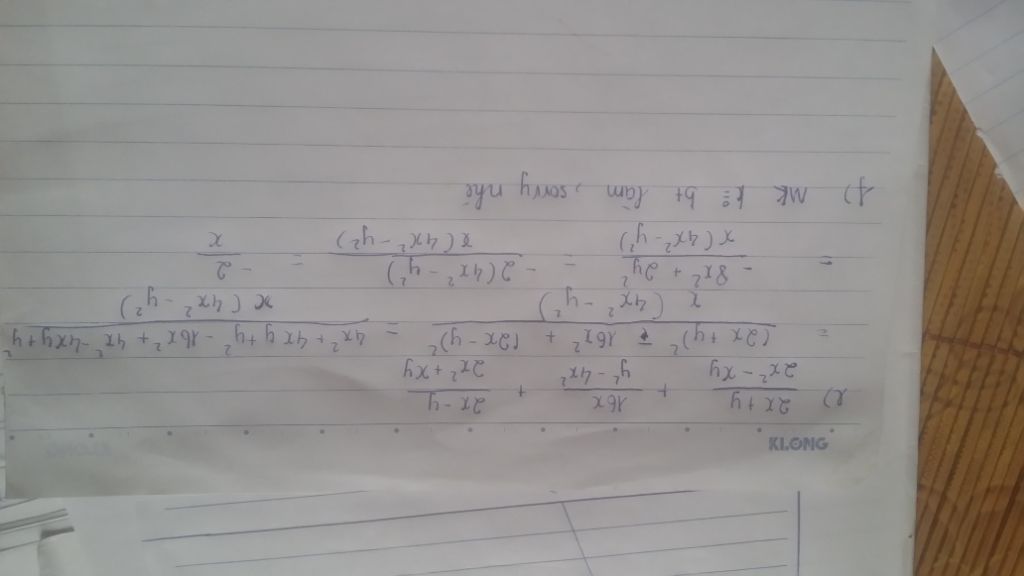 KLONG
e) (2x + y)/(2x² - xy) + 16x/(y² - 4x²) + (2x - y)/(2x² + xy)
= ((2x + y)² - 16x² + (2x - y)²)/(x (4x² - y²)) = (4x² + 4xy + y² - 16x² + 4x² - 4xy + y²)/(x (4x² - y²))
= (-8x² + 2y²)/(x (4x² - y²)) = (-2 (4x² - y²))/(x (4x² - y²)) = -2/x
f) Mk k= bt làm, sorry nhé